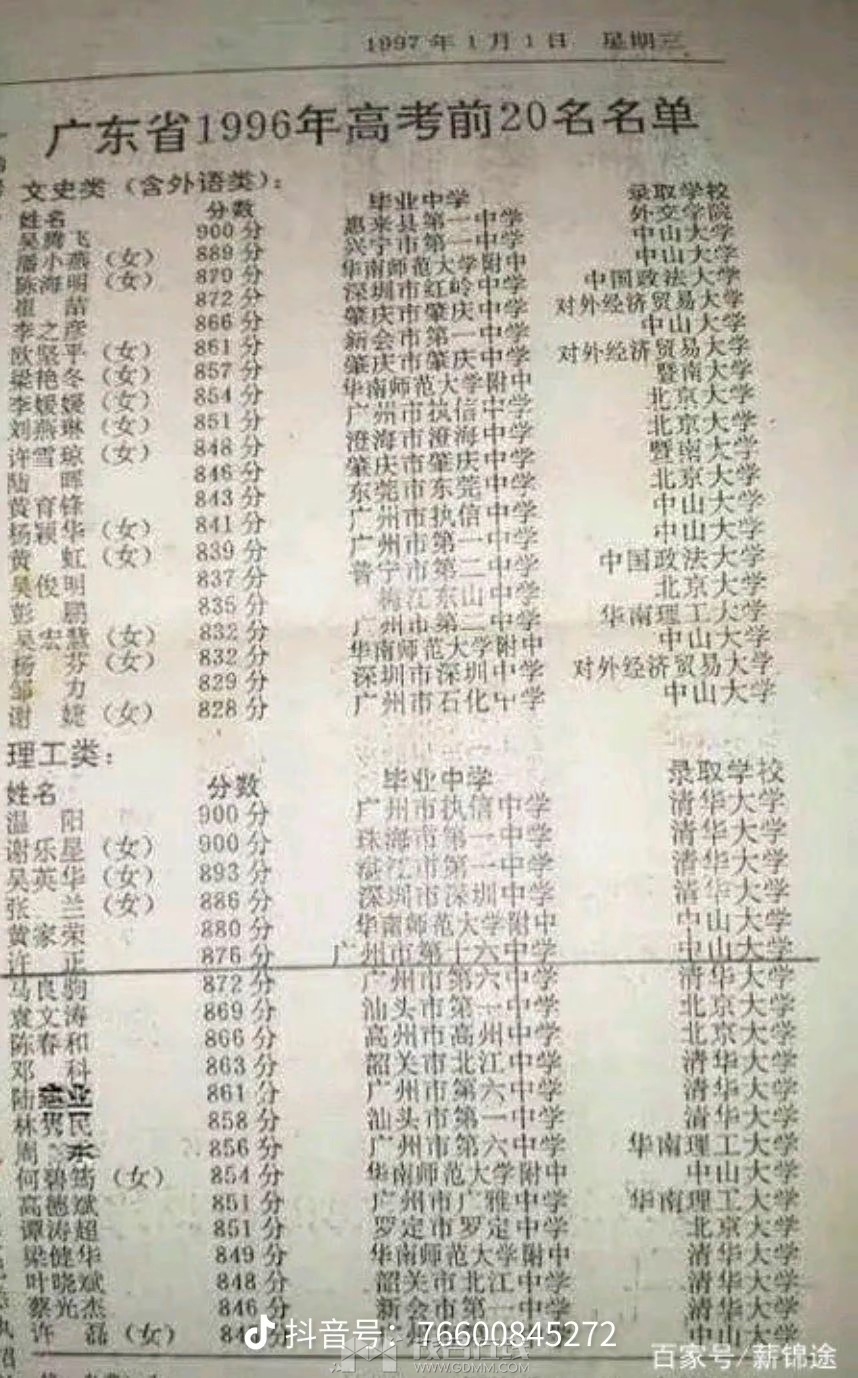 1997年1月1日 星期三
广东省1996年高考前20名名单
文史类（含外语类）：
姓名 分数 毕业中学 录取学校
吴腾飞 900分 惠来县第一中学 外交学院
潘小燕（女） 889分 兴宁市第一中学 中山大学
陈海明（女） 分 华南师范大学附中 中山大学
崔 喆 872分 深圳市红岭中学 中国政法大学
李之彦 866分 肇庆市肇庆中学 对外经济贸易大学
欧坚平（女） 861分 新会市第一中学 中山大学
梁艳冬（女） 857分 肇庆市肇庆中学 对外经济贸易大学
李媛媛（女） 854分 华南师范大学附中 暨南大学
刘燕琳（女） 851分 广州市执信中学 北京大学
许雪琼（女） 848分 澄海市澄海中学 北京大学
陆 晖 846分 肇庆市肇庆中学 暨南大学
黄育锋 843分 东莞市东莞中学 北京大学
杨颖华（女） 841分 广州市执信中学 中山大学
黄 虹（女） 839分 广州市第一中学 中山大学
吴俊明 837分 普宁市第二中学 中国政法大学
彭 鹏 835分 梅江东山中学 北京大学
吴宏慧（女） 832分 广州市第二中学 华南理工大学
杨 芬（女） 832分 华南师范大学附中 中山大学
邹 力 829分 深圳市深圳中学 对外经济贸易大学
谢 婕（女） 828分 广州市石化中学 中山大学
理工类：
姓名 分数 毕业中学 录取学校
温 阳 900分 广州市执信中学 清华大学
谢乐星（女） 900分 珠海市第一中学 清华大学
吴英华（女） 893分 湛江市第一中学 清华大学
张 兰（女） 886分 深圳市深圳中学 清华大学
黄家荣 880分 华南师范大学附中 中山大学
许 正 876分 广州市第十六中学 中山大学
马良驹 872分 广州市第六中学 清华大学
袁文涛 869分 汕头市第一中学 北京大学
陈春和 866分 高州市高州中学 北京大学
邓 科 863分 韶关市北江中学 清华大学
陆 业 861分 广州市第六中学 清华大学
林 民 858分 汕头市第一中学 清华大学
周 东 856分 广州市第六中学 华南理工大学
何碧筠（女） 854分 华南师范大学附中 中山大学
高德斌 851分 广州市广雅中学 华南理工大学
谭涛超 851分 罗定市罗定中学 北京大学
梁健华 849分 华南师范大学附中 清华大学
叶晓斌 848分 韶关市北江中学 清华大学
蔡光杰 846分 新会市第一中学 清华大学
许 磊（女） 中山大学
抖音号：76600845272
WWW.GDMM.COM
百家号/薪锦途